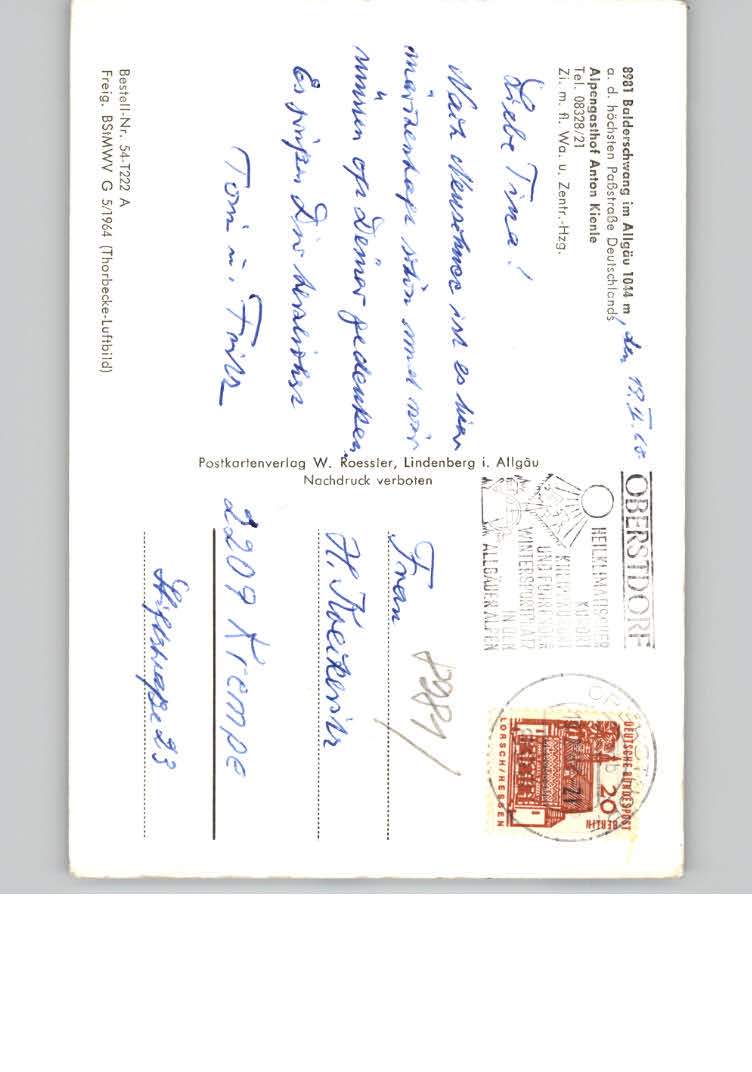 8981 Balderschwang im Allgäu 1044 m
a. d. höchsten Paßstraße Deutschlands
Alpengasthof Anton Kienle
Tel. 08328/21
Zi. m. fl. Wa. u. Zentr.-Hzg.
, den 19.II.68
Liebe Tina!
Nach Neuschnee ist es hier
märchenhaft schön und wir
müssen oft Deiner gedenken.
Es grüßen Dich herzlichst
Toni u. Fritz
Bestell-Nr. 54-T222 A
Freig. BStMWV G 5/1964 (Thorbecke-Luftbild)
Postkartenverlag W. Roessler, Lindenberg i. Allgäu
Nachdruck verboten
OBERSTDORF
HEILKLIMATISCHER
KURORT
KNEIPPKURORT
UND FÜHRENDER
WINTERSPORTPLATZ
IN DEN
ALLGÄUER ALPEN
DEUTSCHE BUNDESPOST
BERLIN
20
LORSCH/HESSEN
8981
Frau
2209 Krempe
Stiftstraße 23